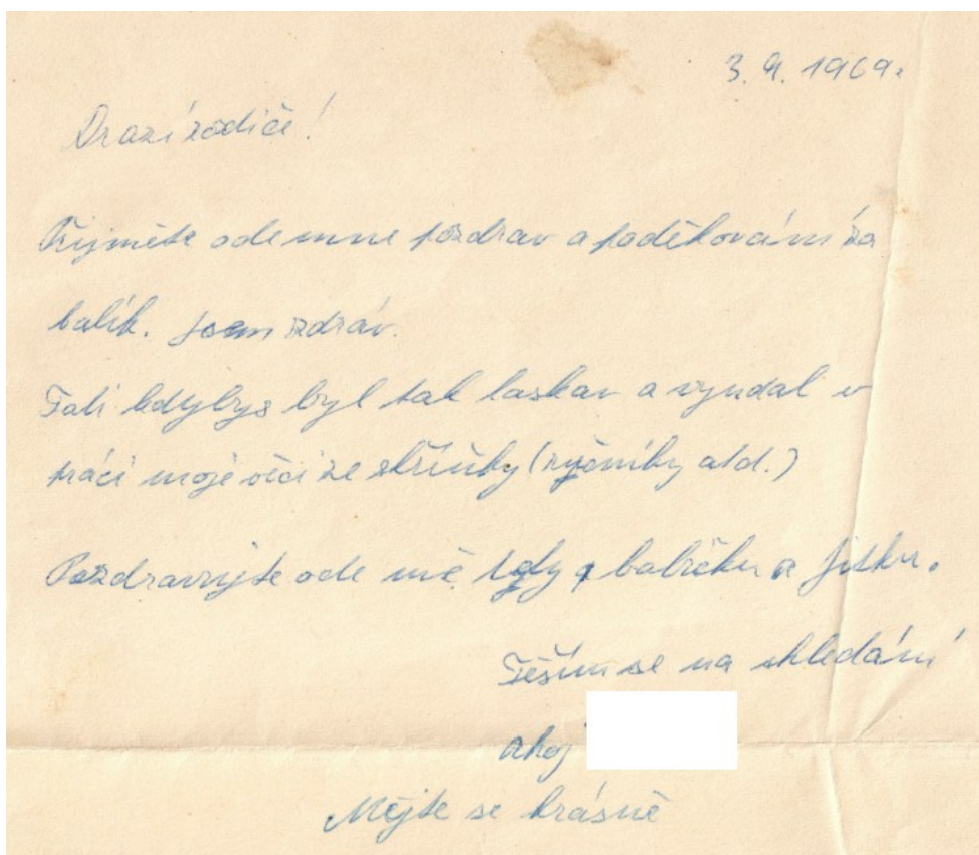 3. 9. 1969.
Drazí rodiče!
Přijměte ode mne pozdrav a poděkování za
balík. Jsem zdráv.
Tati kdybys byl tak laskav a vyndal v
práci moje věci ze skříňky (ručníky atd.)
Pozdravujte ode mě babičku a Jitku.
Těším se na shledání
ahoj
Mějte se krásně